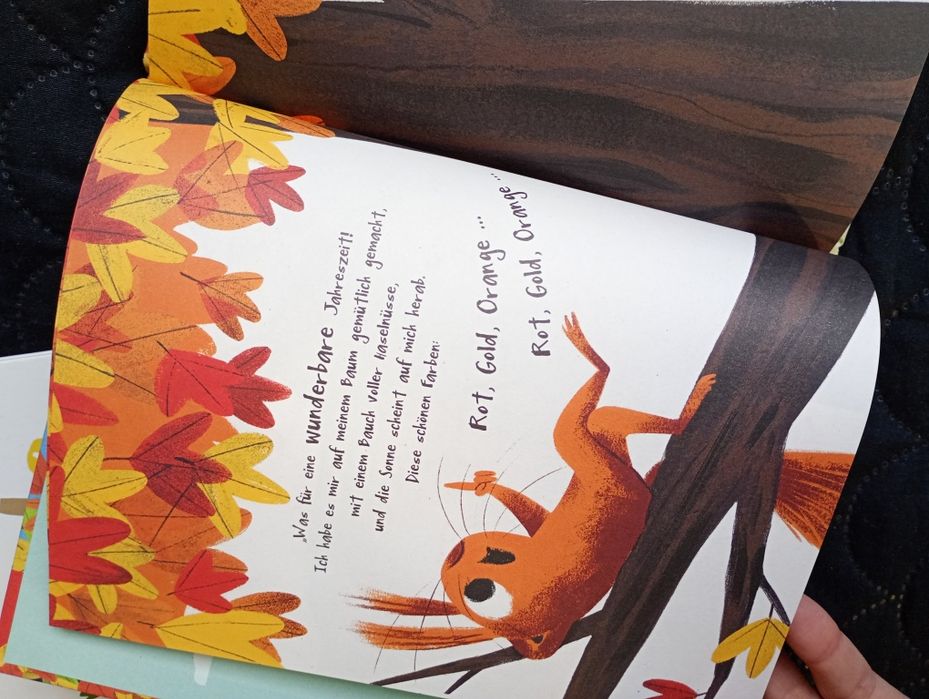 „Was für eine wunderbare Jahreszeit!
Ich habe es mir auf meinem Baum gemütlich gemacht,
mit einem Bauch voller Haselnüsse,
und die Sonne scheint auf mich herab.
Diese schönen Farben:
Rot, Gold, Orange ...
Rot, Gold, Orange ..."